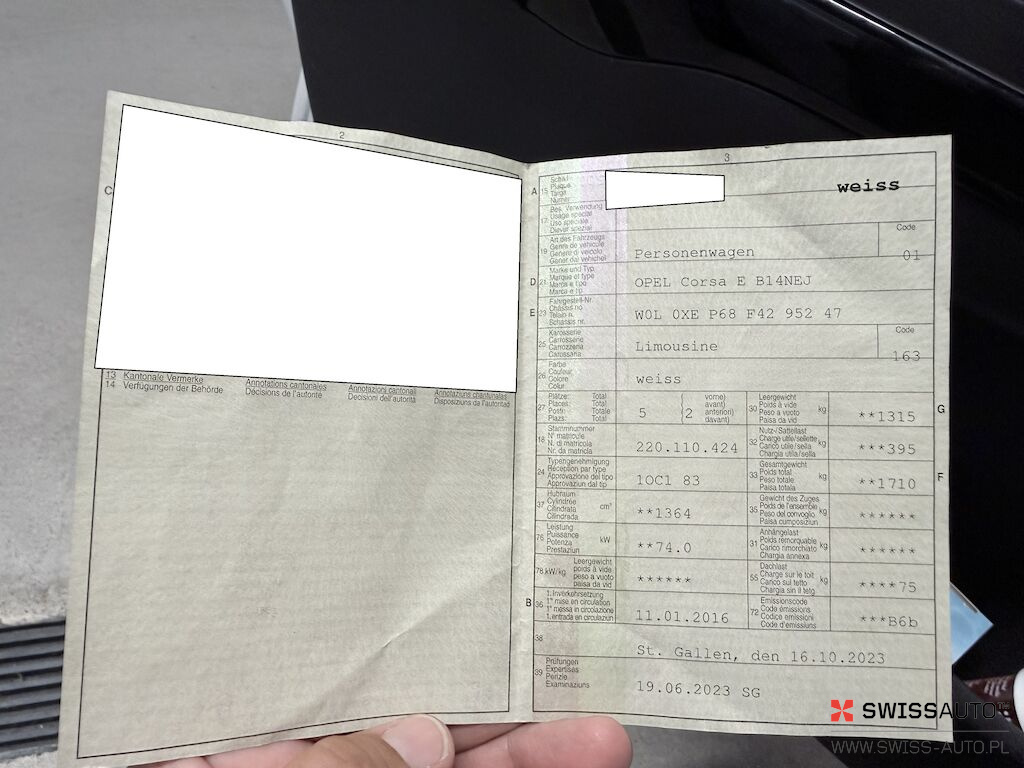 2
C
13 Kantonale Vermerke Annotations cantonales Annotazioni cantonali Annotaziuns chantunalas
14 Verfügungen der Behörde Décisions de l'autorité Decisioni dell'autorità Disposiziuns da l'autoritad
3
A 15 Schild
Plaque
Targa
Numer
weiss
17 Bes. Verwendung
Usage spécial
Uso speciale
Diever spezial
19 Art des Fahrzeugs
Genre de véhicule
Genere di veicolo
Gener dal vehichel
Personenwagen
Code
01
D 21 Marke und Typ
Marque et type
Marca e tipo
Marca e tip
OPEL Corsa E B14NEJ
E 23 Fahrgestell-Nr.
Châssis no
Telaio n.
Schassis nr.
W0L 0XE P68 F42 952 47
25 Karosserie
Carrosserie
Carrozzeria
Carossaria
Limousine
Code
163
26 Farbe
Couleur
Colore
Colur
weiss
27 Plätze: Total
Places: Total
Posti: Totale
Plazs: Total
5 (2 vorne)
avant)
anteriori)
davant)
30 Leergewicht
Poids à vide
Peso a vuoto
Paisa da vid
kg
**1315
G
18 Stammnummer
N° matricule
N. di matricola
Nr. da matricla
220.110.424
32 Nutz-/Sattellast
Charge utile/sellette
Carico utile/sella
Chargia utila/sella
kg
***395
24 Typengenehmigung
Réception par type
Approvazione del tipo
Approvaziun dal tip
1OC1 83
33 Gesamtgewicht
Poids total
Peso totale
Paisa totala
kg
**1710
F
37 Hubraum
Cylindrée
Cilindrata
Cilindrada
cm³
**1364
35 Gewicht des Zuges
Poids de l'ensemble
Peso del convoglio
Paisa cumposiziun
kg
******
76 Leistung
Puissance
Potenza
Prestaziun
kW
**74.0
31 Anhängelast
Poids remorquable
Carico rimorchiato
Chargia annexa
kg
******
78 kW/kg Leergewicht
poids à vide
peso a vuoto
paisa da vid
******
55 Dachlast
Charge sur le toit
Carico sul tetto
Chargia sin il tetg
kg
****75
B 36 1. Inverkehrsetzung
1re mise en circulation
1a messa in circolazione
1. entrada en circulaziun
11.01.2016
72 Emissionscode
Code émissions
Codice emissioni
Code d'emissiuns
***B6b
38
St. Gallen, den 16.10.2023
39 Prüfungen
Expertises
Perizie
Examinaziuns
19.06.2023 SG
SWISSAUTO
WWW.SWISS-AUTO.PL